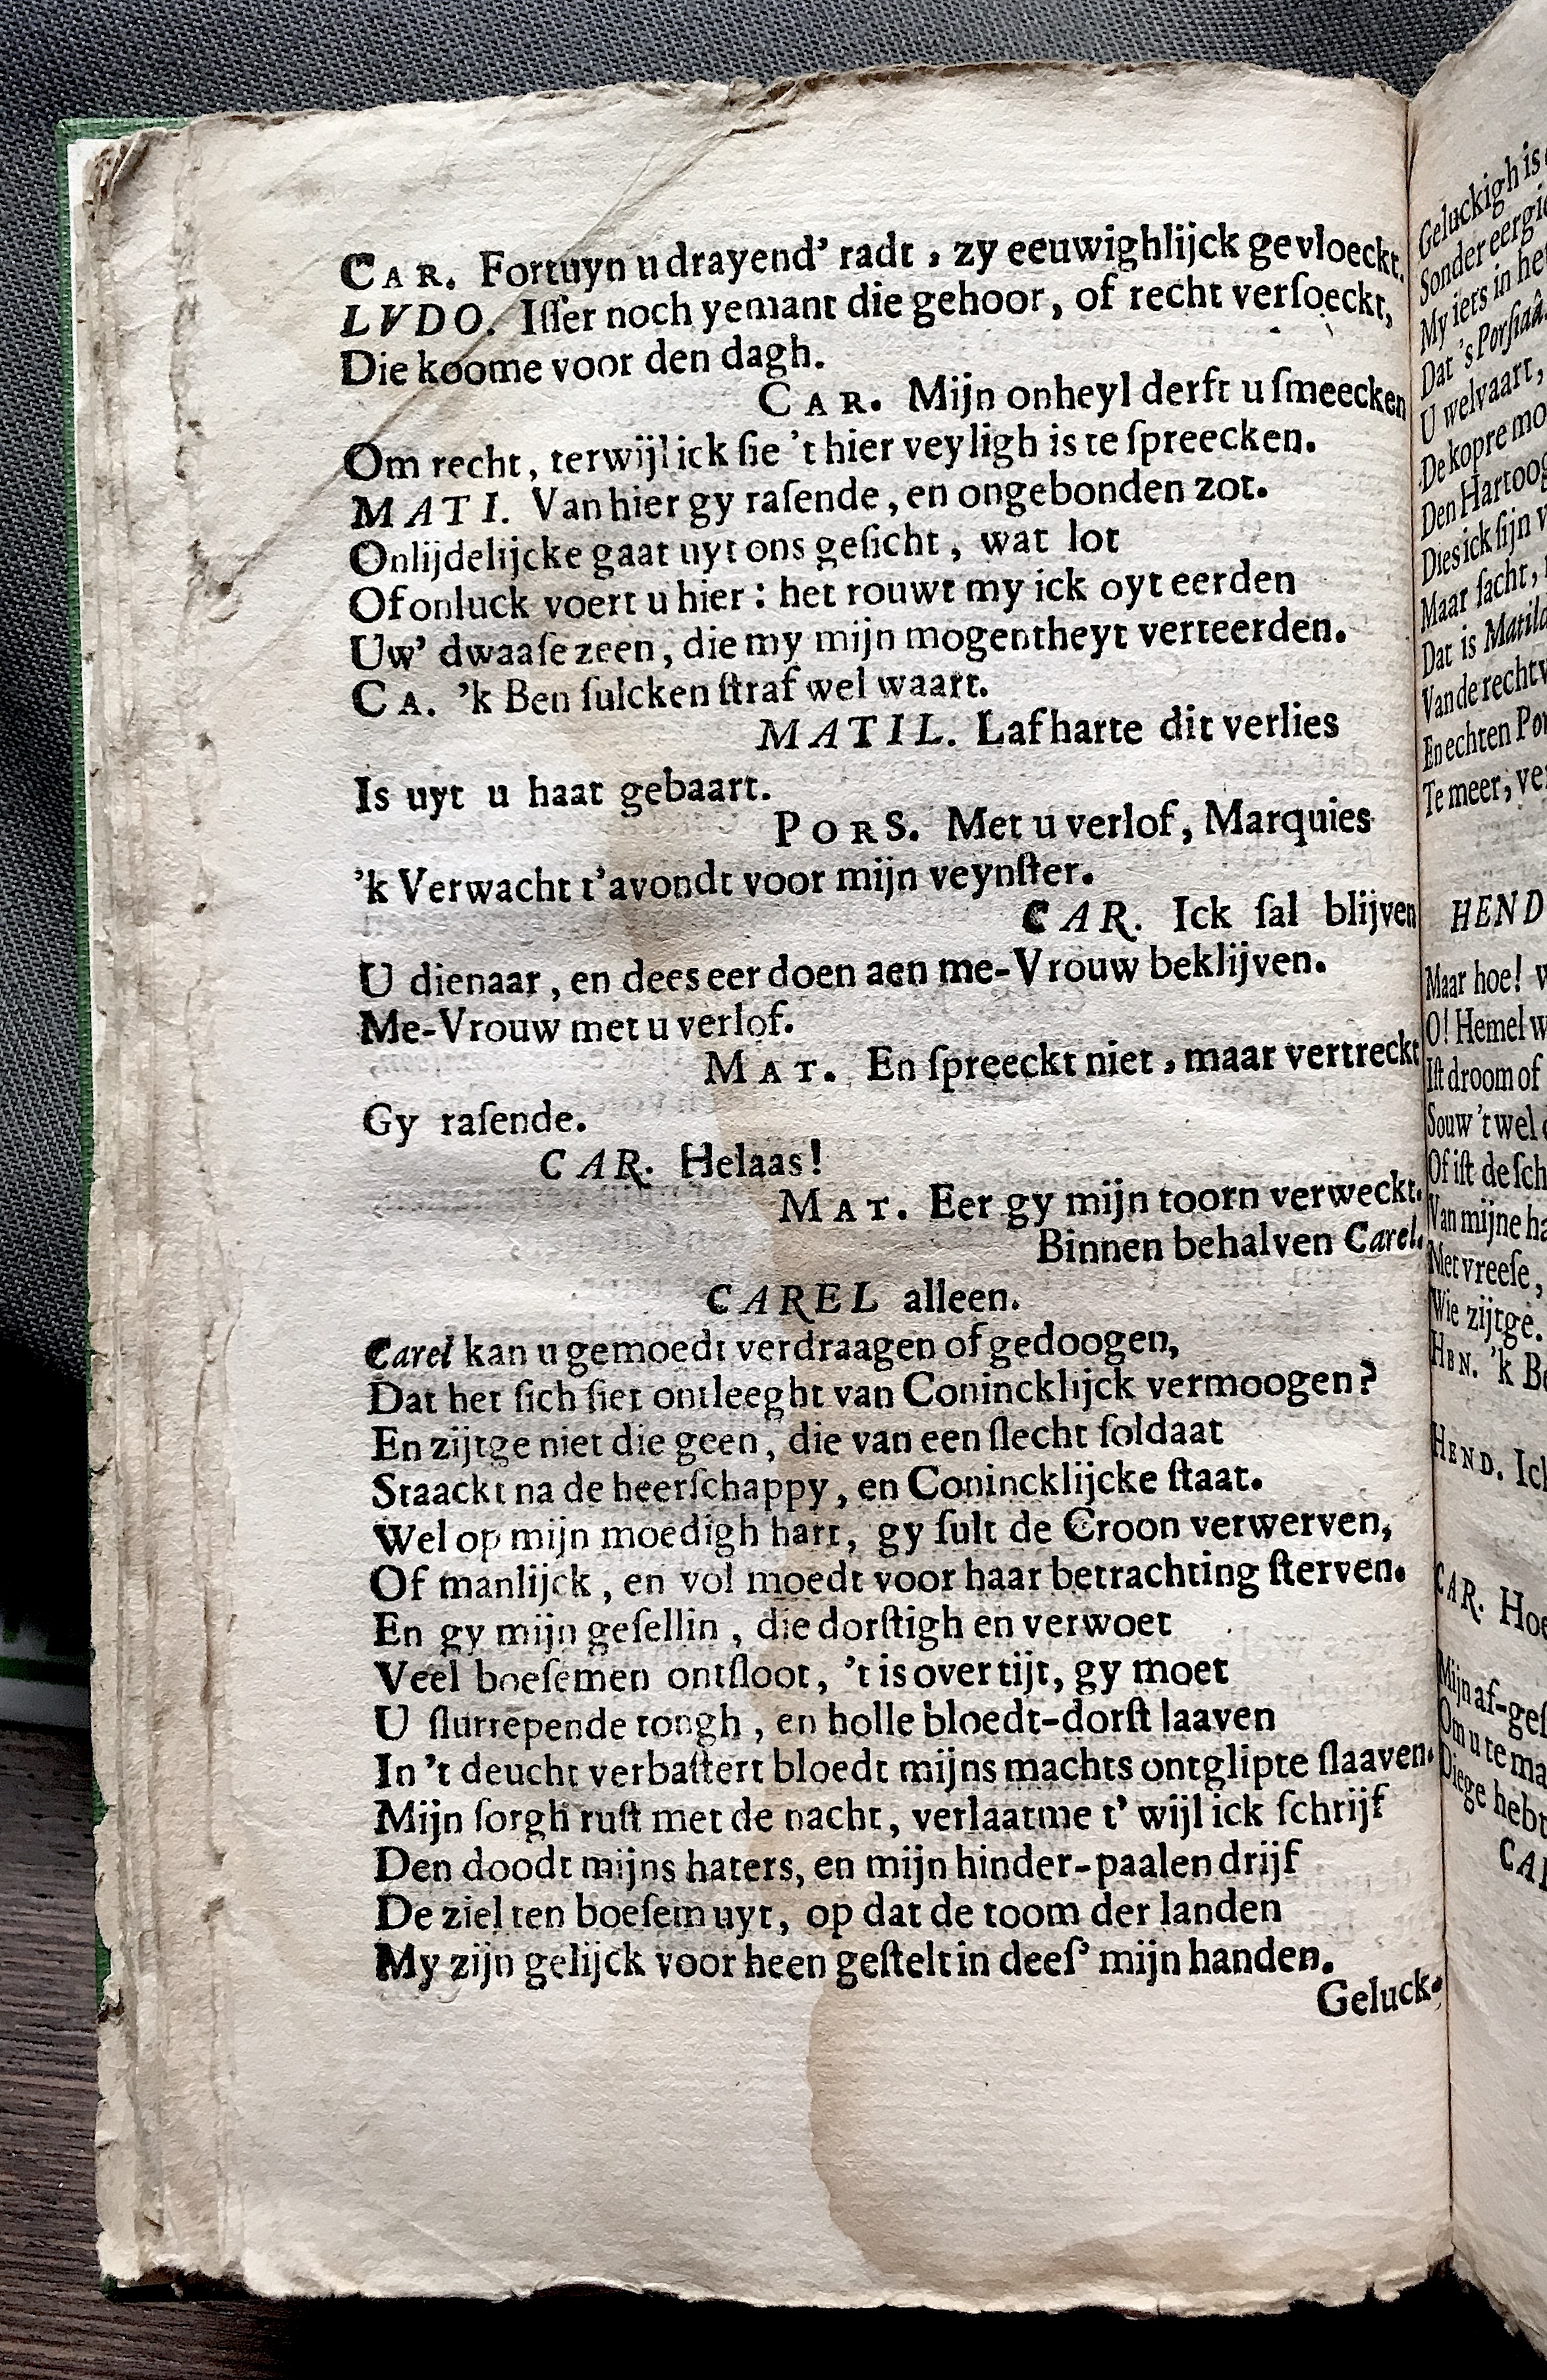 CAR. Fortuyn u drayend' radt, zy eeuwighlijck gevloeckt.
LVDO. Iſſer noch yemant die gehoor, of recht verſoeckt,
Die koome voor den dagh.
CAR. Mijn onheyl derft u ſmeecken
Om recht, terwijl ick ſie 't hier veyligh is te ſpreecken.
MATI. Van hier gy raſende, en ongebonden zot.
Onlijdelijcke gaat uyt ons geſicht, wat lot
Of onluck voert u hier: het rouwt my ick oyt eerden
Uw' dwaaſe zeen, die my mijn mogentheyt verteerden.
CA. 'k Ben ſulcken ſtraf wel waart.
MATIL. Lafharte dit verlies
Is uyt u haat gebaart.
PORS. Met u verlof, Marquies
'k Verwacht t'avondt voor mijn veynſter.
CAR. Ick ſal blijven
U dienaar, en dees eer doen aen me-Vrouw beklijven.
Me-Vrouw met u verlof.
MAT. En ſpreeckt niet, maar vertreckt
Gy raſende.
CAR. Helaas!
MAT. Eer gy mijn toorn verweckt.
Binnen behalven Carel.
CAREL alleen.
Carel kan u gemoedt verdraagen of gedoogen,
Dat het ſich ſiet ontleeght van Conincklijck vermoogen?
En zijtge niet die geen, die van een ſlecht ſoldaat
Staackt na de heerſchappy, en Conincklijcke ſtaat.
Wel op mijn moedigh hart, gy ſult de Croon verwerven,
Of manlijck, en vol moedt voor haar betrachting ſterven.
En gy mijn geſellin, die dorſtigh en verwoet
Veel boeſemen ontſloot, 't is over tijt, gy moet
U ſlurrepende tongh, en holle bloedt-dorſt laaven
In 't deucht verbaſtert bloedt mijns machts ontglipte ſlaaven.
Mijn ſorgh ruſt met de nacht, verlaatme t' wijl ick ſchrijf
Den doodt mijns haters, en mijn hinder-paalen drijf
De ziel ten boeſem uyt, op dat de toom der landen
My zijn gelijck voor heen geſtelt in deeſ' mijn handen.
Geluck-
Geluckigh is
Sonder
My iets in het
Dat 's Porſiaâ
U welvaart,
De kopre
Den Hartoog
Dies ick ſijn
Maar ſacht,
Dat is
Van de
En echten
Te meer,
HEND
Maar hoe!
O! Hemel
Iſt droom of
Souw 't wel
Of iſt de
Van mijne
Met vreeſe,
Wie zijtge.
HEN. 'k
HEND.
CAR.
Mijn
Om u te
Diege